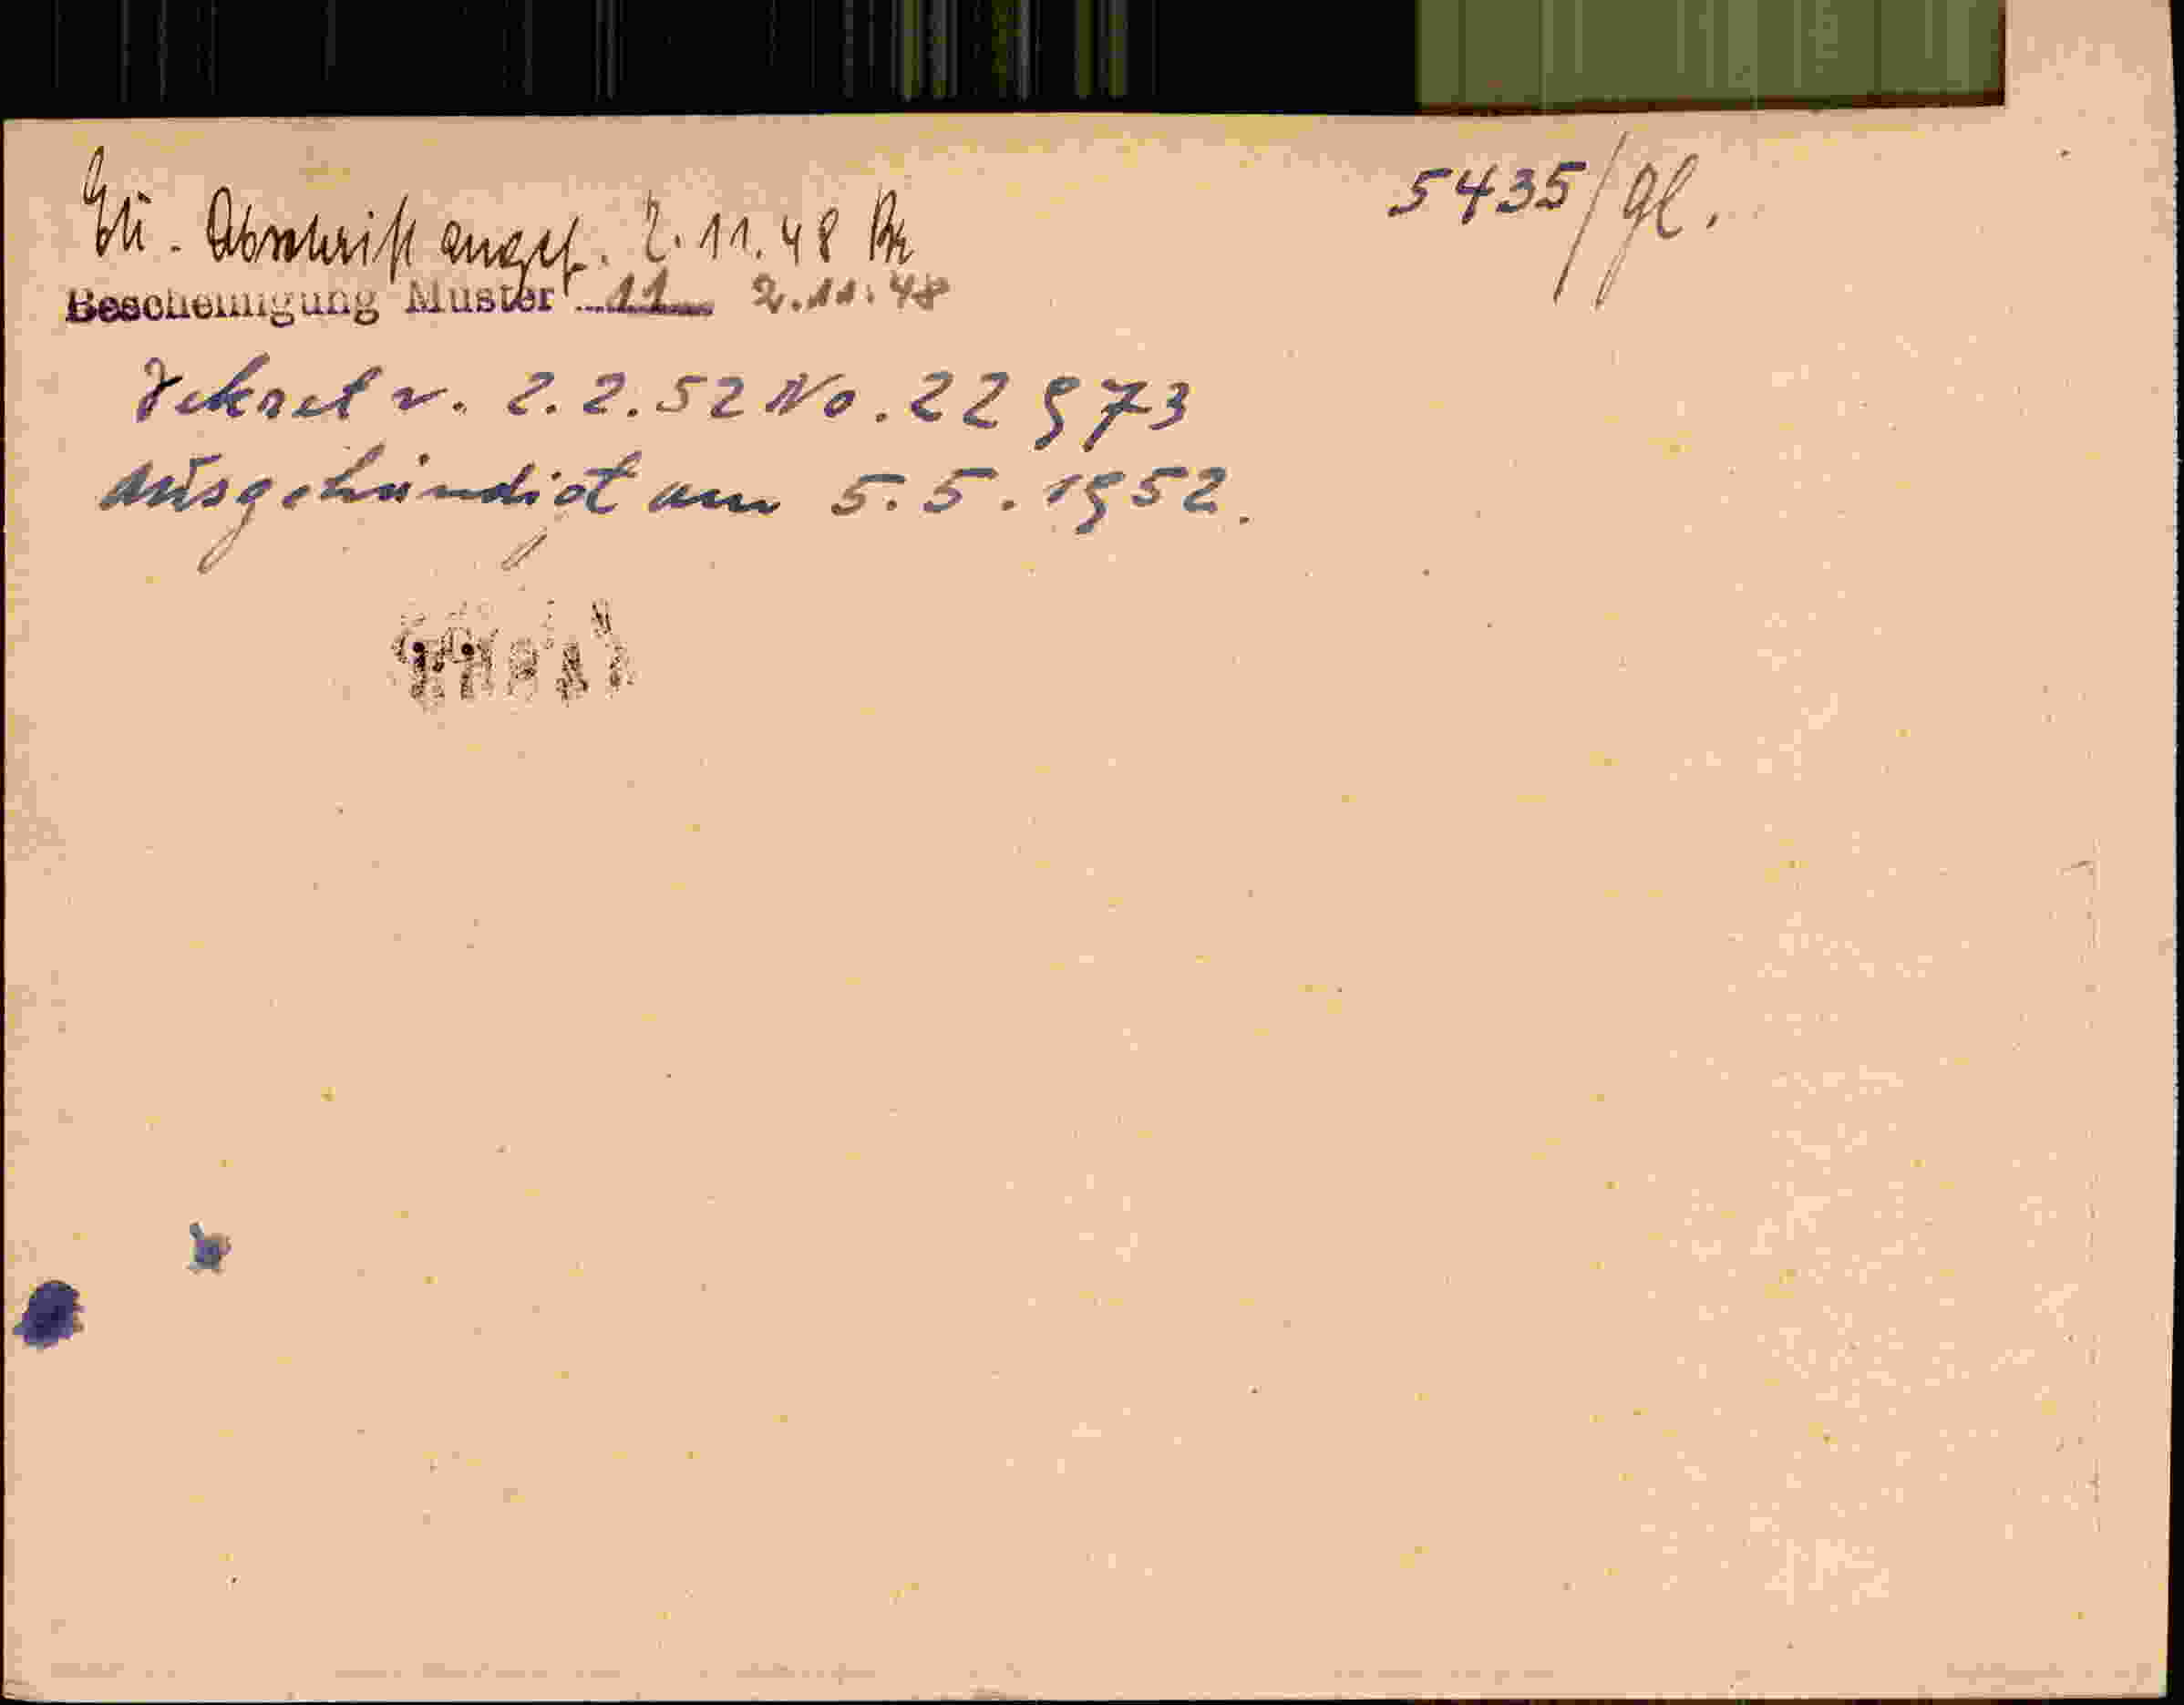 Abschrift angef. 2.11.48
5435/gl.
Bescheinigung Muster 11 2.11.48
Dekret v. 2.2.52 No. 22973
ausgehändigt am 5.5.1952.